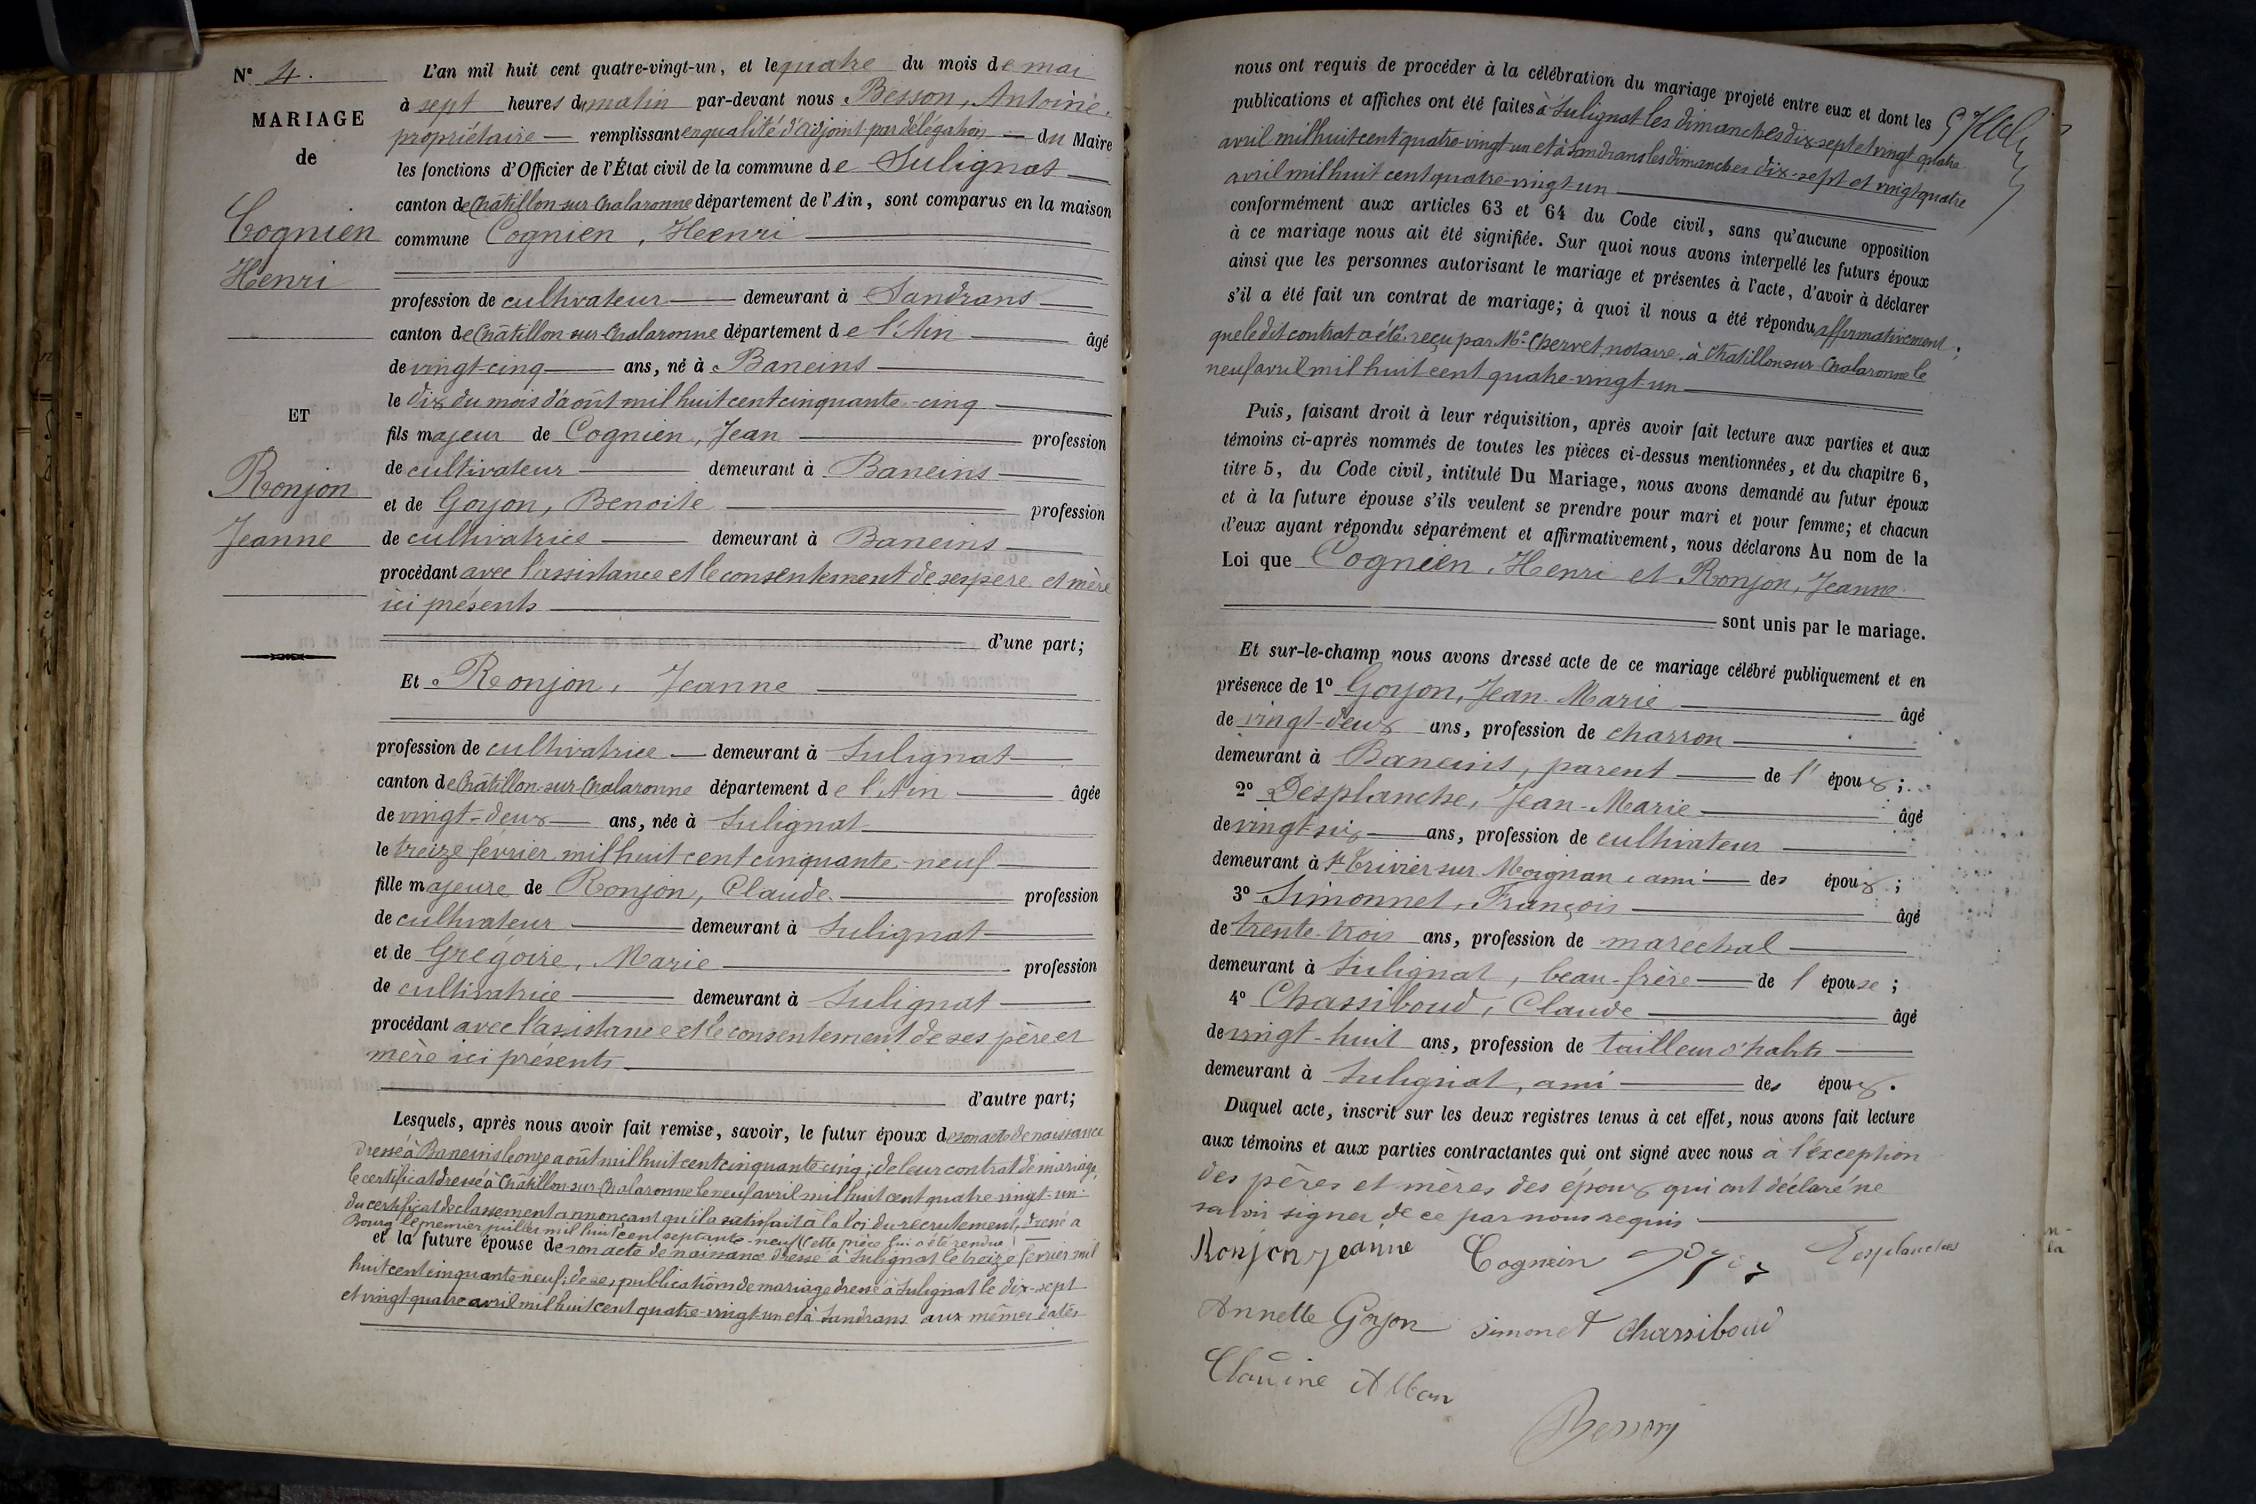 N° 4.
MARIAGE
de
Cognien
Henri
ET
Ronjon
Jeanne
L'an mil huit cent quatre-vingt-un, et le quatre du mois de mai
à sept heures du matin par-devant nous Besson, Antoine,
propriétaire — remplissant en qualité d'adjoint par délégation — du Maire
les fonctions d'Officier de l'État civil de la commune de Sulignat —
canton de Châtillon-sur-Chalaronne département de l'Ain, sont comparus en la maison
commune Cognien, Henri
profession de cultivateur — demeurant à Sandrans —
canton de Châtillon-sur-Chalaronne département de l'Ain — âgé
de vingt-cinq — ans, né à Baneins —
le dix du mois d'août mil huit cent cinquante-cinq
fils majeur de Cognien, Jean — profession
de cultivateur — demeurant à Baneins —
et de Goyon, Benoite — profession
de cultivatrice — demeurant à Baneins —
procédant avec l'assistance et le consentement de ses père et mère
ici présents —
d'une part;
Et Ronjon, Jeanne —
profession de cultivatrice — demeurant à Sulignat —
canton de Châtillon-sur-Chalaronne département de l'Ain — âgée
de vingt-deux — ans, née à Sulignat —
le treize février mil huit cent cinquante-neuf —
fille majeure de Ronjon, Claude — profession
de cultivateur — demeurant à Sulignat —
et de Grégoire, Marie — profession
de cultivatrice — demeurant à Sulignat —
procédant avec l'assistance et le consentement de ses père et
mère ici présents —
d'autre part;
Lesquels, après nous avoir fait remise, savoir, le futur époux de son acte de naissance
dressé à Baneins le onze août mil huit cent cinquante cinq; de leur contrat de mariage,
le certificat dressé à Châtillon-sur-Chalaronne le neuf avril mil huit cent quatre-vingt-un.
du certificat de classement annonçant qu'il a satisfait à la loi du recrutement, dressé à
Bourg le premier juillet mil huit cent septante-neuf (cette pièce lui a été rendue) —
et la future épouse de son acte de naissance dressé à Sulignat le treize février mil
huit cent cinquante neuf; de ses publications de mariage dressé à Sulignat le dix-sept
et vingt quatre avril mil huit cent quatre-vingt-un et à Sandrans aux mêmes dates
nous ont requis de procéder à la célébration du mariage projeté entre eux et dont les
publications et affiches ont été faites à Sulignat les dimanches dix-sept et vingt quatre
avril mil huit cent quatre-vingt-un et à Sandrans les dimanches dix-sept et vingt quatre
avril mil huit cent quatre-vingt-un —
conformément aux articles 63 et 64 du Code civil, sans qu'aucune opposition
à ce mariage nous ait été signifiée. Sur quoi nous avons interpellé les futurs époux
ainsi que les personnes autorisant le mariage et présentes à l'acte, d'avoir à déclarer
s'il a été fait un contrat de mariage; à quoi il nous a été répondu affirmativement;
que le dit contrat a été reçu par Me Chervet notaire à Chatillon sur Chalaronne le
neuf avril mil huit cent quatre-vingt-un —
Puis, faisant droit à leur réquisition, après avoir fait lecture aux parties et aux
témoins ci-après nommés de toutes les pièces ci-dessus mentionnées, et du chapitre 6,
titre 5, du Code civil, intitulé Du Mariage, nous avons demandé au futur époux
et à la future épouse s'ils veulent se prendre pour mari et pour femme; et chacun
d'eux ayant répondu séparément et affirmativement, nous déclarons Au nom de la
Loi que Cognien, Henri et Ronjon, Jeanne
sont unis par le mariage.
Et sur-le-champ nous avons dressé acte de ce mariage célébré publiquement et en
présence de 1° Goyon, Jean Marie — âgé
de vingt-deux ans, profession de charron —
demeurant à Baneins, parent — de l'époux;
2° Desplanche, Jean-Marie — âgé
de vingt-six — ans, profession de cultivateur —
demeurant à St Trivier sur Moignan, ami — des époux;
3° Simonnet, François — âgé
de trente-trois ans, profession de maréchal —
demeurant à Sulignat, beau-frère — de l épouse;
4° Chassiboud, Claude — âgé
de vingt-huit ans, profession de tailleur d'habits —
demeurant à Sulignat, ami — des époux.
Duquel acte, inscrit sur les deux registres tenus à cet effet, nous avons fait lecture
aux témoins et aux parties contractantes qui ont signé avec nous à l'exception
des pères et mères des époux qui ont déclaré ne
savoir signer de ce par nous requis —
Ronjon jeanne Cognien Desplanches
Annette Goyon Simonet Chassiboud
Claudine Alban
Besson